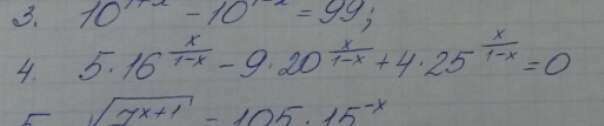 3. 10^{1+x} - 10^{1-x} = 99;
4. 5·16^{\frac{x}{1-x}} - 9·20^{\frac{x}{1-x}} + 4·25^{\frac{x}{1-x}} = 0
5. \sqrt{7^{x+1}} = 105·15^{-x}